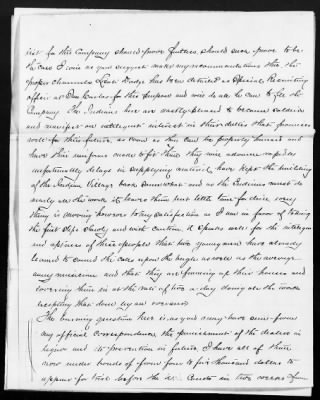 list for this Company should prove futile, should such prove to be
the case I will as you suggest make my recommendations thro' the
proper channels. Lieut. Dodge has been detailed as Special Recruiting
officer at San Carlos for this purpose and will I think be able to fill the
Company. The Indians here are vastly pleased to become soldiers
and manifest an intelligent interest in their duties that promises
well for their future, as soon as they can be properly housed and
have their uniforms made to fit them they will advance rapidly.
Unfortunately delays in supplying material, have kept the building
of the Indian Village back somewhat and as the Indians must do
nearly all the work it leaves them but little time for drill, every
thing is moving however to my satisfaction as I am in favor of taking
the first steps slowly and with caution. It speaks well for the intelligence
and aptness of these people that two young men have already
learned to sound the calls upon the bugle as well as the average
army musician and that they are framing up their houses and
covering them in at the rate of two a day doing all the work
excepting that done by an overseer.
The burning question here is as you may have seen from
my official correspondence, the punishment of the dealers in
liquor and its prevention in future, I have all of them
now under bonds of from four to five thousand dollars to
appear for trial before the U.S. Courts in two weeks from